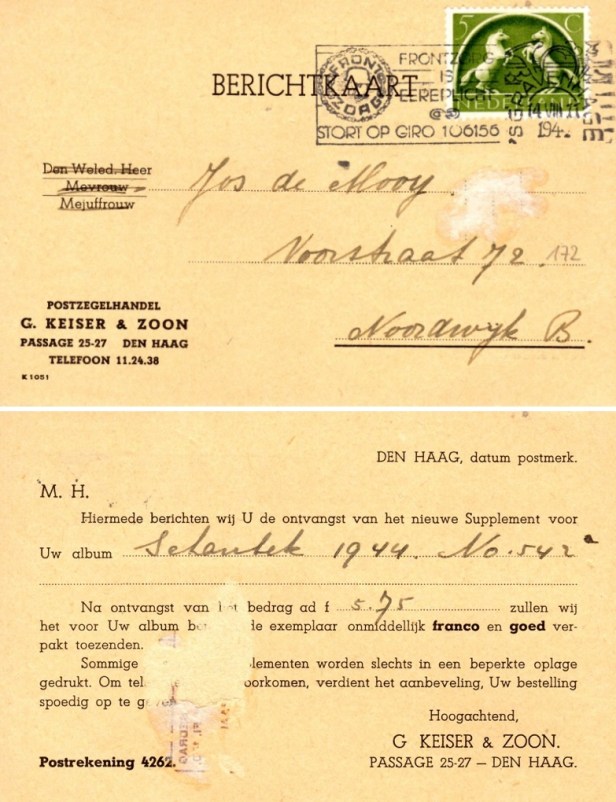 5 C
NEDERLAND
FRONTZORG
IS
EEREPLICHT
STORT OP GIRO 106156
FRONT
ZORG
'S GRAVENHAGE
14 VIII 11
194
BERICHTKAART
Den Weled. Heer
Mevrouw
Mejuffrouw
Jos de Mooy
Voorstraat 72 172
Noordwyk B.
POSTZEGELHANDEL
G. KEISER & ZOON
PASSAGE 25-27 DEN HAAG
TELEFOON 11.24.38
K 1051
DEN HAAG, datum postmerk.
M. H.
Hiermede berichten wij U de ontvangst van het nieuwe Supplement voor
Uw album Schantek 1944. No. 542 a
Na ontvangst van het bedrag ad f 5.75 zullen wij
het voor Uw album be de exemplaar onmiddellijk franco en goed ver-
pakt toezenden.
Sommige lementen worden slechts in een beperkte oplage
gedrukt. Om tel oorkomen, verdient het aanbeveling, Uw bestelling
spoedig op te g
Hoogachtend,
G KEISER & ZOON.
Postrekening 4262. PASSAGE 25-27 — DEN HAAG.